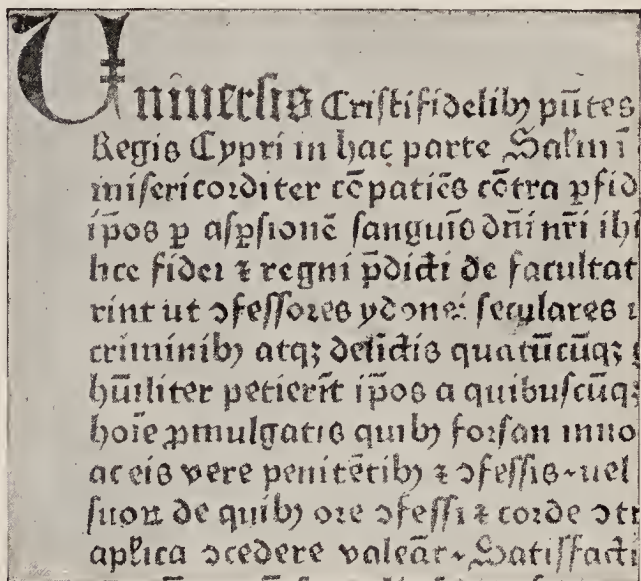 Uniuersis Cristifidelibꝫ pn̄tes
Regis Cypri in hac parte Salm̄ ī
misericorditer cōpatiēs cōtra ꝑfid
ip̄os ꝑ aspſionē sanguīs dn̄i nr̄i ih
lice fidei ⁊ regni p̄dicti de facultat
rint ut ↄfeſſores ydonei seculares
criminibꝫ atqꝫ delictis quatūcūqꝫ
hūiliter petierīt ip̄os a quibuſcūqꝫ
hoīe ꝓmulgatis quibꝫ forſan inno
ac eis vere penitētibꝫ ⁊ ↄfeſſis uel
ſuoꝝ de quibꝫ ore ↄfeſſi ⁊ corde ↄtr
apl̄ica ↄcedere valeāt Satiſfacti